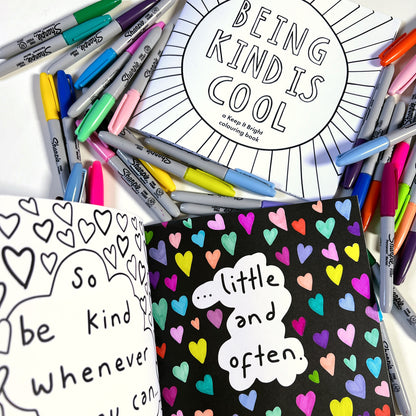 BEING
KIND IS
COOL
a Keep it Bright
colouring book
So
be kind
whenever
you can
...little
and
often.
Sharpie
Sharpie
Sharpie